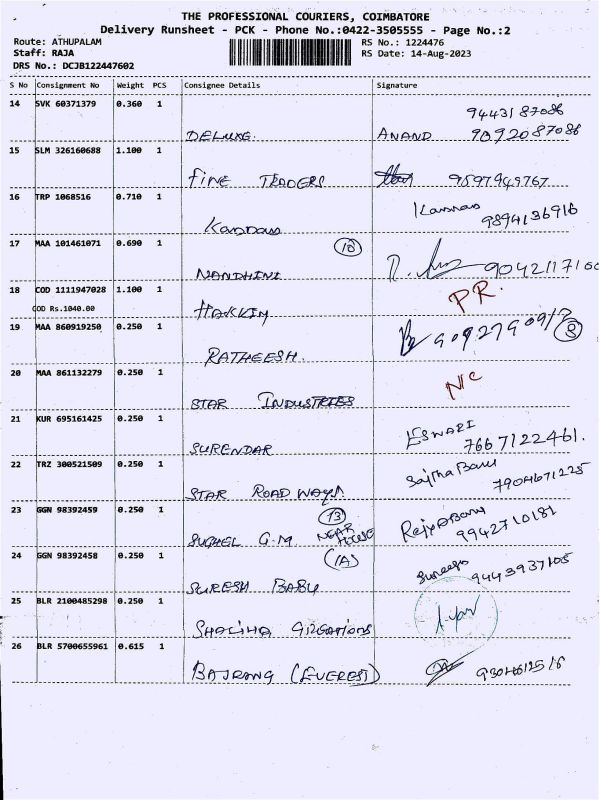 THE PROFESSIONAL COURIERS, COIMBATORE
Delivery Runsheet - PCK - Phone No.:0422-3505555 - Page No.:2
Route: ATHUPALAM RS No.: 1224476
Staff: RAJA RS Date: 14-Aug-2023
DRS No.: DCJB122447602
S No Consignment No Weight PCS Consignee Details Signature
14 SVK 60371379 0.360 1
9443187086
DELUXE. ANAND 9092087086
15 SLM 326160688 1.100 1
FINE TRADERS 9597949767
16 TRP 1068516 0.710 1
Kannan
9894136916
17 MAA 101461071 0.690 1
10
NANDHINI
18 COD 1111947028 1.100 1
COD Rs.1040.00
HAKKIM PR.
19 MAA 860919250 0.250 1
8
RATHEESH.
20 MAA 861132279 0.250 1
NC
STAR INDUSTRIES
21 KUR 695161425 0.250 1
ESWARI
SURENDAR 7667122461.
22 TRZ 300521509 0.250 1
Sajitha Banu
STAR ROAD WAYS. 7904671225
23 GGN 98392459 0.250 1
13
NEAR
HOUSE
SUGHEL G.M. 9942710181
24 GGN 98392458 0.250 1
1A
SURESH BABU 9443937105
25 BLR 2100485298 0.250 1
SHALIHA
26 BLR 5700655961 0.615 1
BAJRANG (EVEREST)